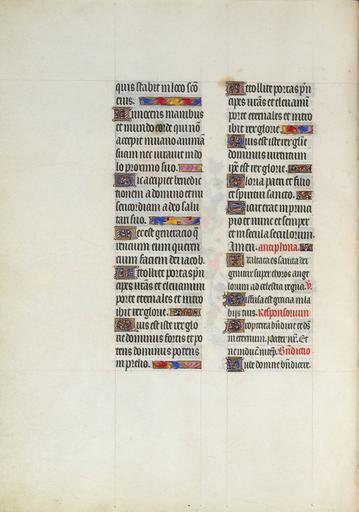 quis stabit in loco sc̄o
eius.
Innocens manibus
et mundo corde qui nō
accepit in uano animā
suam nec iurauit in do
lo proximo suo.
Hic accipiet benedic
tionem a domino et mi
sericordiam a deo salu
tari suo.
Hec est generatio q̄
rencium eum queren
cium faciem dei iacob.
Attollite portas p̄n
cipes urās et eleuamini
porte eternales et intro
ibit rex glorie.
Quis est iste rex glo
rie dominus fortis et po
tens dominus potens
in prelio.
Attollite portas p̄n
cipes urās et eleuamī
porte eternales et intro
ibit rex glorie.
Quis est iste rex glorie
dominus uirtutum
ip̄e est rex glorie.
Gloria patri et filio
et spiritui sancto.
Sicut erat in prin
cipio et nunc et semper
et in secula seculorum.
Amen. antiphona.
Exaltata es sancta dei
genitrix super choros ange
lorum ad celestia regna. V̄.
Diffusa est gracia in la
biis tuis. Responsorium
Propterea bn̄dixit te ds̄
in eternum. Pater nr̄. Et
ne indux̄ in temp̄. Bn̄dictio
Iube domne bn̄dicere.